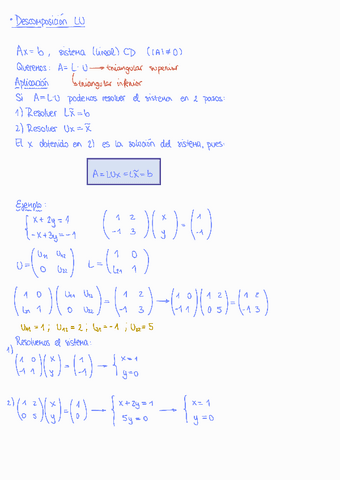 • Descomposición LU
Ax = b, sistema (lineal) CD (|A| ≠ 0)
Queremos: A = L · U → triangular superior
Aplicación triangular inferior
Si A = L·U podemos resolver el sistema en 2 pasos:
1) Resolver Lx̃ = b
2) Resolver Ux = x̃
El x obtenido en 2) es la solución del sistema, pues:
A = LUx = Lx̃ = b
Ejemplo:
{ x + 2y = 1 ( 1 2 ) ( x ) = ( 1 )
{ -x + 3y = -1 ( -1 3 ) ( y ) ( -1 )
U = ( U₁₁ U₁₂ ) L = ( 1 0 )
( 0 U₂₂ ) ( l₂₁ 1 )
( 1 0 ) ( U₁₁ U₁₂ ) = ( 1 2 ) → ( 1 0 ) ( 1 2 ) = ( 1 2 )
( l₂₁ 1 ) ( 0 U₂₂ ) ( -1 3 ) ( -1 1 ) ( 0 5 ) ( -1 3 )
U₁₁ = 1 ; U₁₂ = 2 ; l₂₁ = -1 ; U₂₂ = 5
Resolvemos el sistema:
1) ( 1 0 ) ( x ) = ( 1 ) → { x = 1
( -1 1 ) ( y ) ( -1 ) { y = 0
2) ( 1 2 ) ( x ) = ( 1 ) → { x + 2y = 1 → { x = 1
( 0 5 ) ( y ) ( 0 ) { 5y = 0 { y = 0